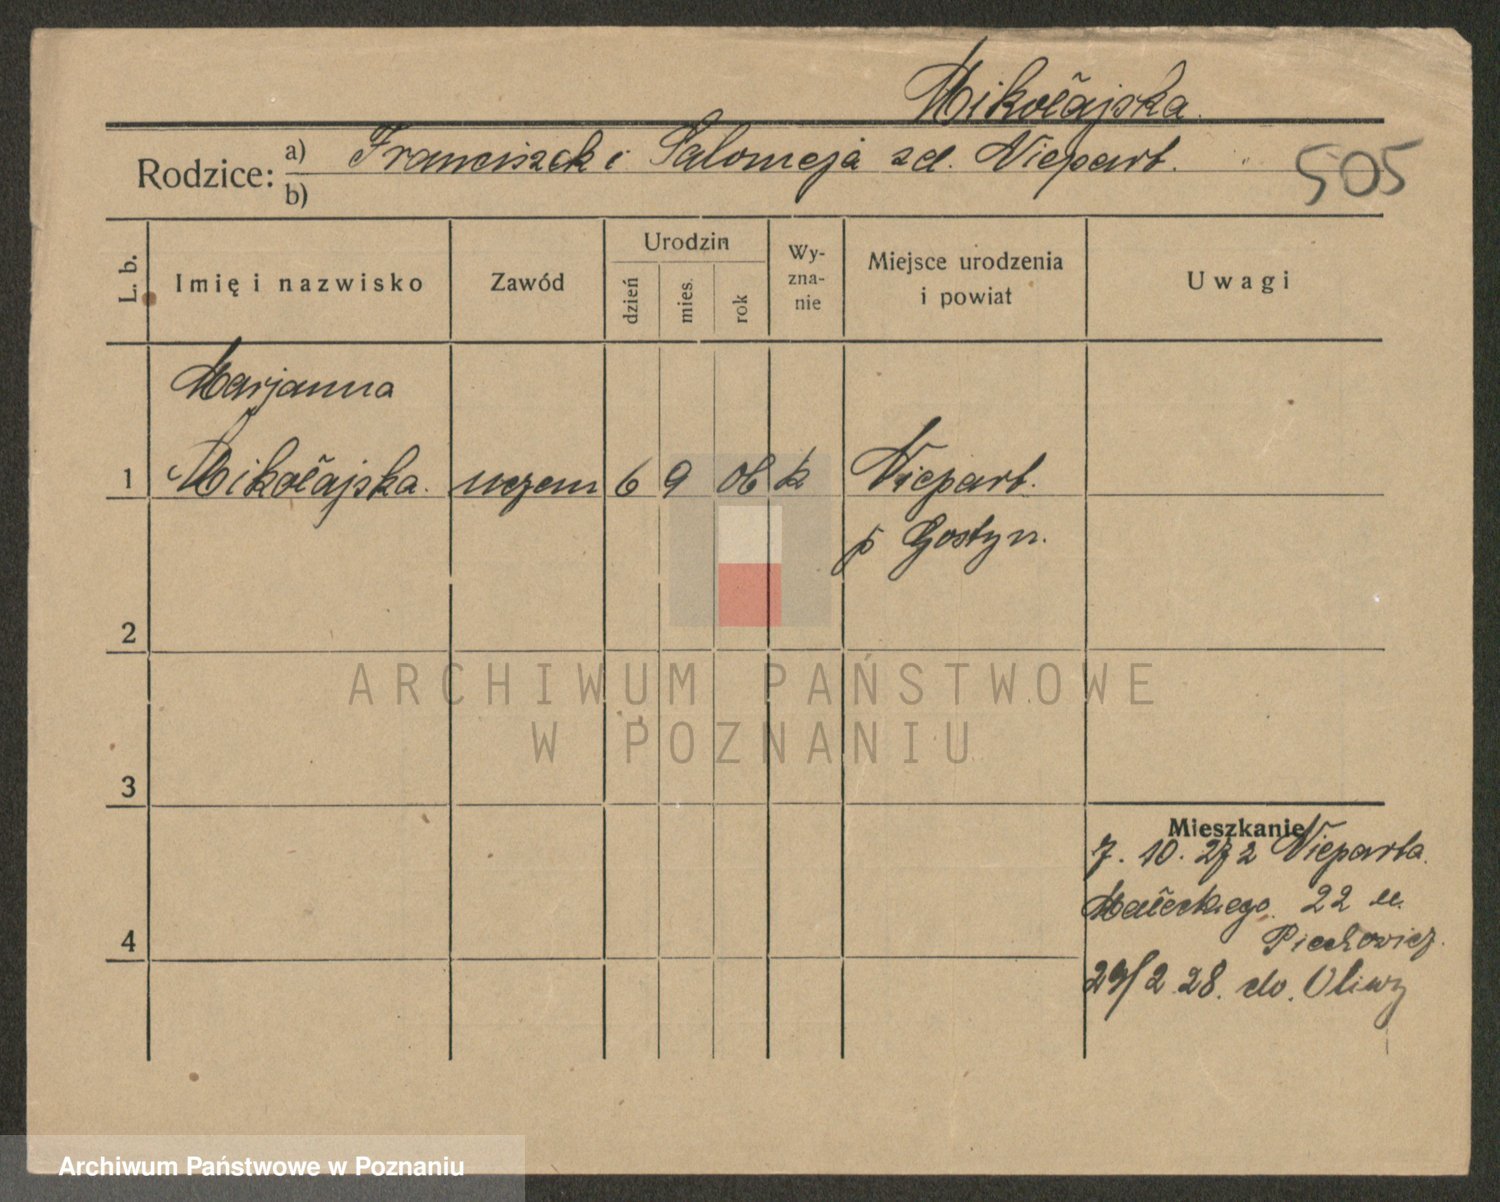 Mikołajska.
Rodzice: a) Franciszek i Salomeja zd. Niepart. 505
b)
L. b. Imię i nazwisko Zawód Urodzin dzień mies. rok Wy-zna-nie Miejsce urodzenia i powiat Uwagi
Marjanna
1 Mikołajska. uczen 6 9 06 k Niepart.
p Gostyn.
2
ARCHIWUM PAŃSTWOWE
W POZNANIU
3
Mieszkanie
7. 10. 27 z Nieparta.
4 Małeckiego. 22 u.
Piechowicz.
29/2 28. do. Oliwy
Archiwum Państwowe w Poznaniu